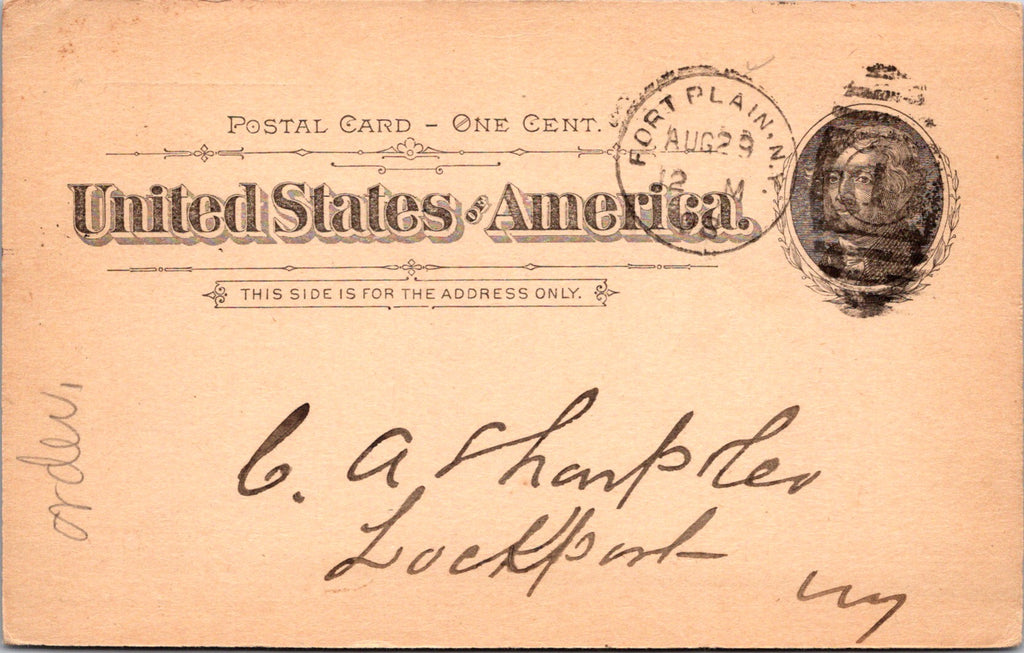 POSTAL CARD - ONE CENT.
United States of America.
THIS SIDE IS FOR THE ADDRESS ONLY.
FORT PLAIN, N.Y.
AUG 29
12 M
C. A Sharpley
Lockport
ny
order,